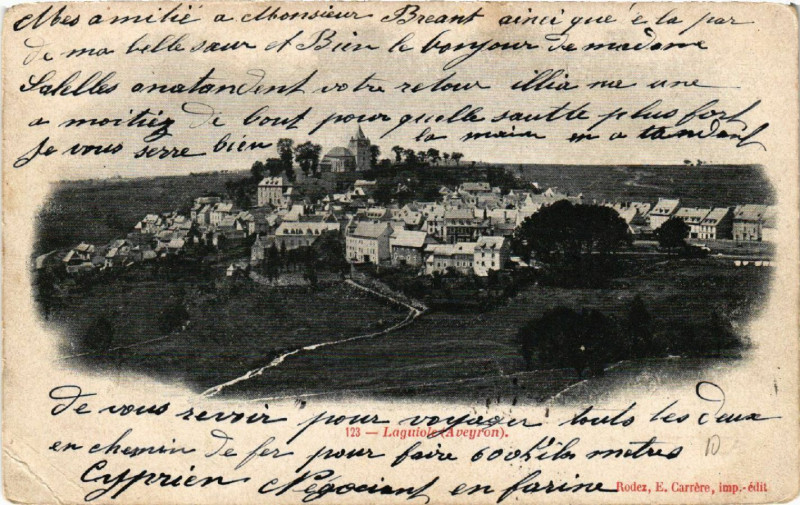 Mes amitié a Monsieur Breant ainci que é la par
de ma belle sœur et Bien le bonjour de madame
Salelles anatandent votre retour illia ne une
a moitiez de bout pour quelle sautte plus fort
Je vous serre bien la main en a tandant
de vous revoir pour voyager touts les deux
123 — Laguiole (Aveyron).
en chemin de fer pour faire 600 kilo metres
Cyprien Négociant en farine
Rodez, E. Carrère, imp.-édit